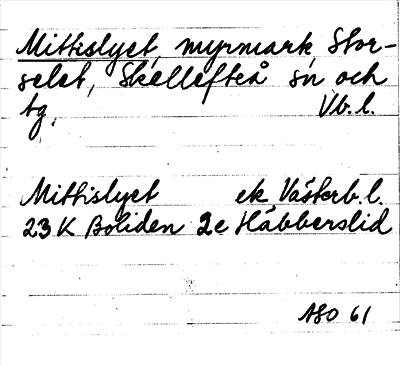 Mittislyet, myrmark, Stor-
selet, Skellefteå sn och
tg, Vb. l.
Mittislyet ek Västerb. l.
23 K Boliden 2c Häbberslid
ASO 61